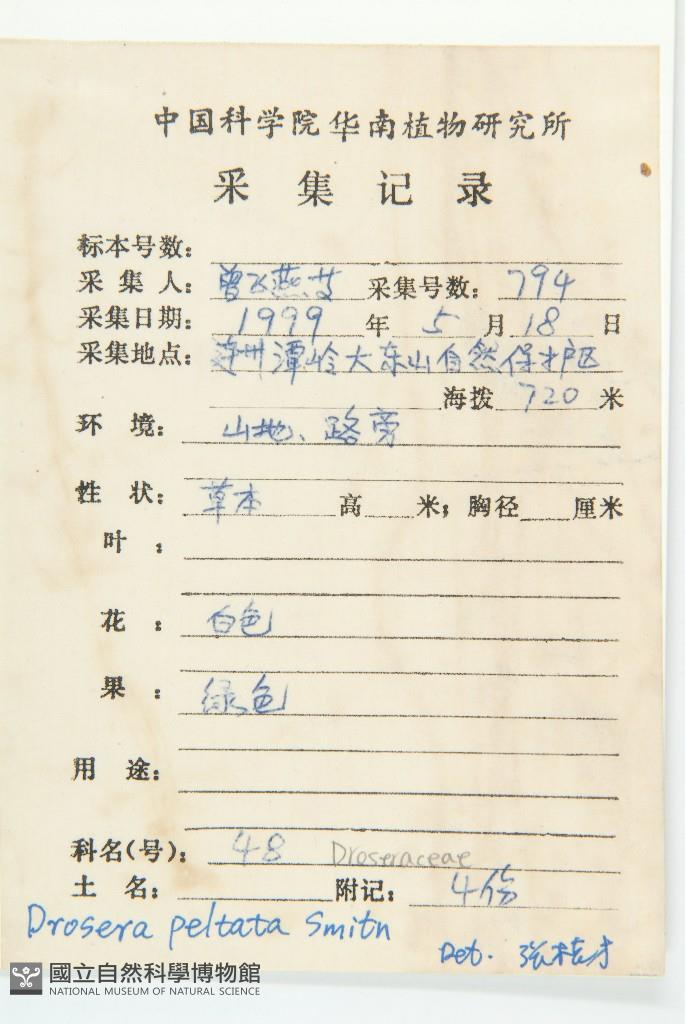 中国科学院华南植物研究所
采集记录
标本号数:
采集人: 曾飞燕等 采集号数: 794
采集日期: 1999 年 5 月 18 日
采集地点: 连州潭岭大东山自然保护区
海拨 720 米
环境: 山地、路旁
性状: 草本 高 米; 胸径 厘米
叶:
花: 白色
果: 绿色
用途:
科名(号): 48 Droseraceae
土名: 附记: 4份
Drosera peltata Smitn
Det. 张桂才
國立自然科學博物館
NATIONAL MUSEUM OF NATURAL SCIENCE